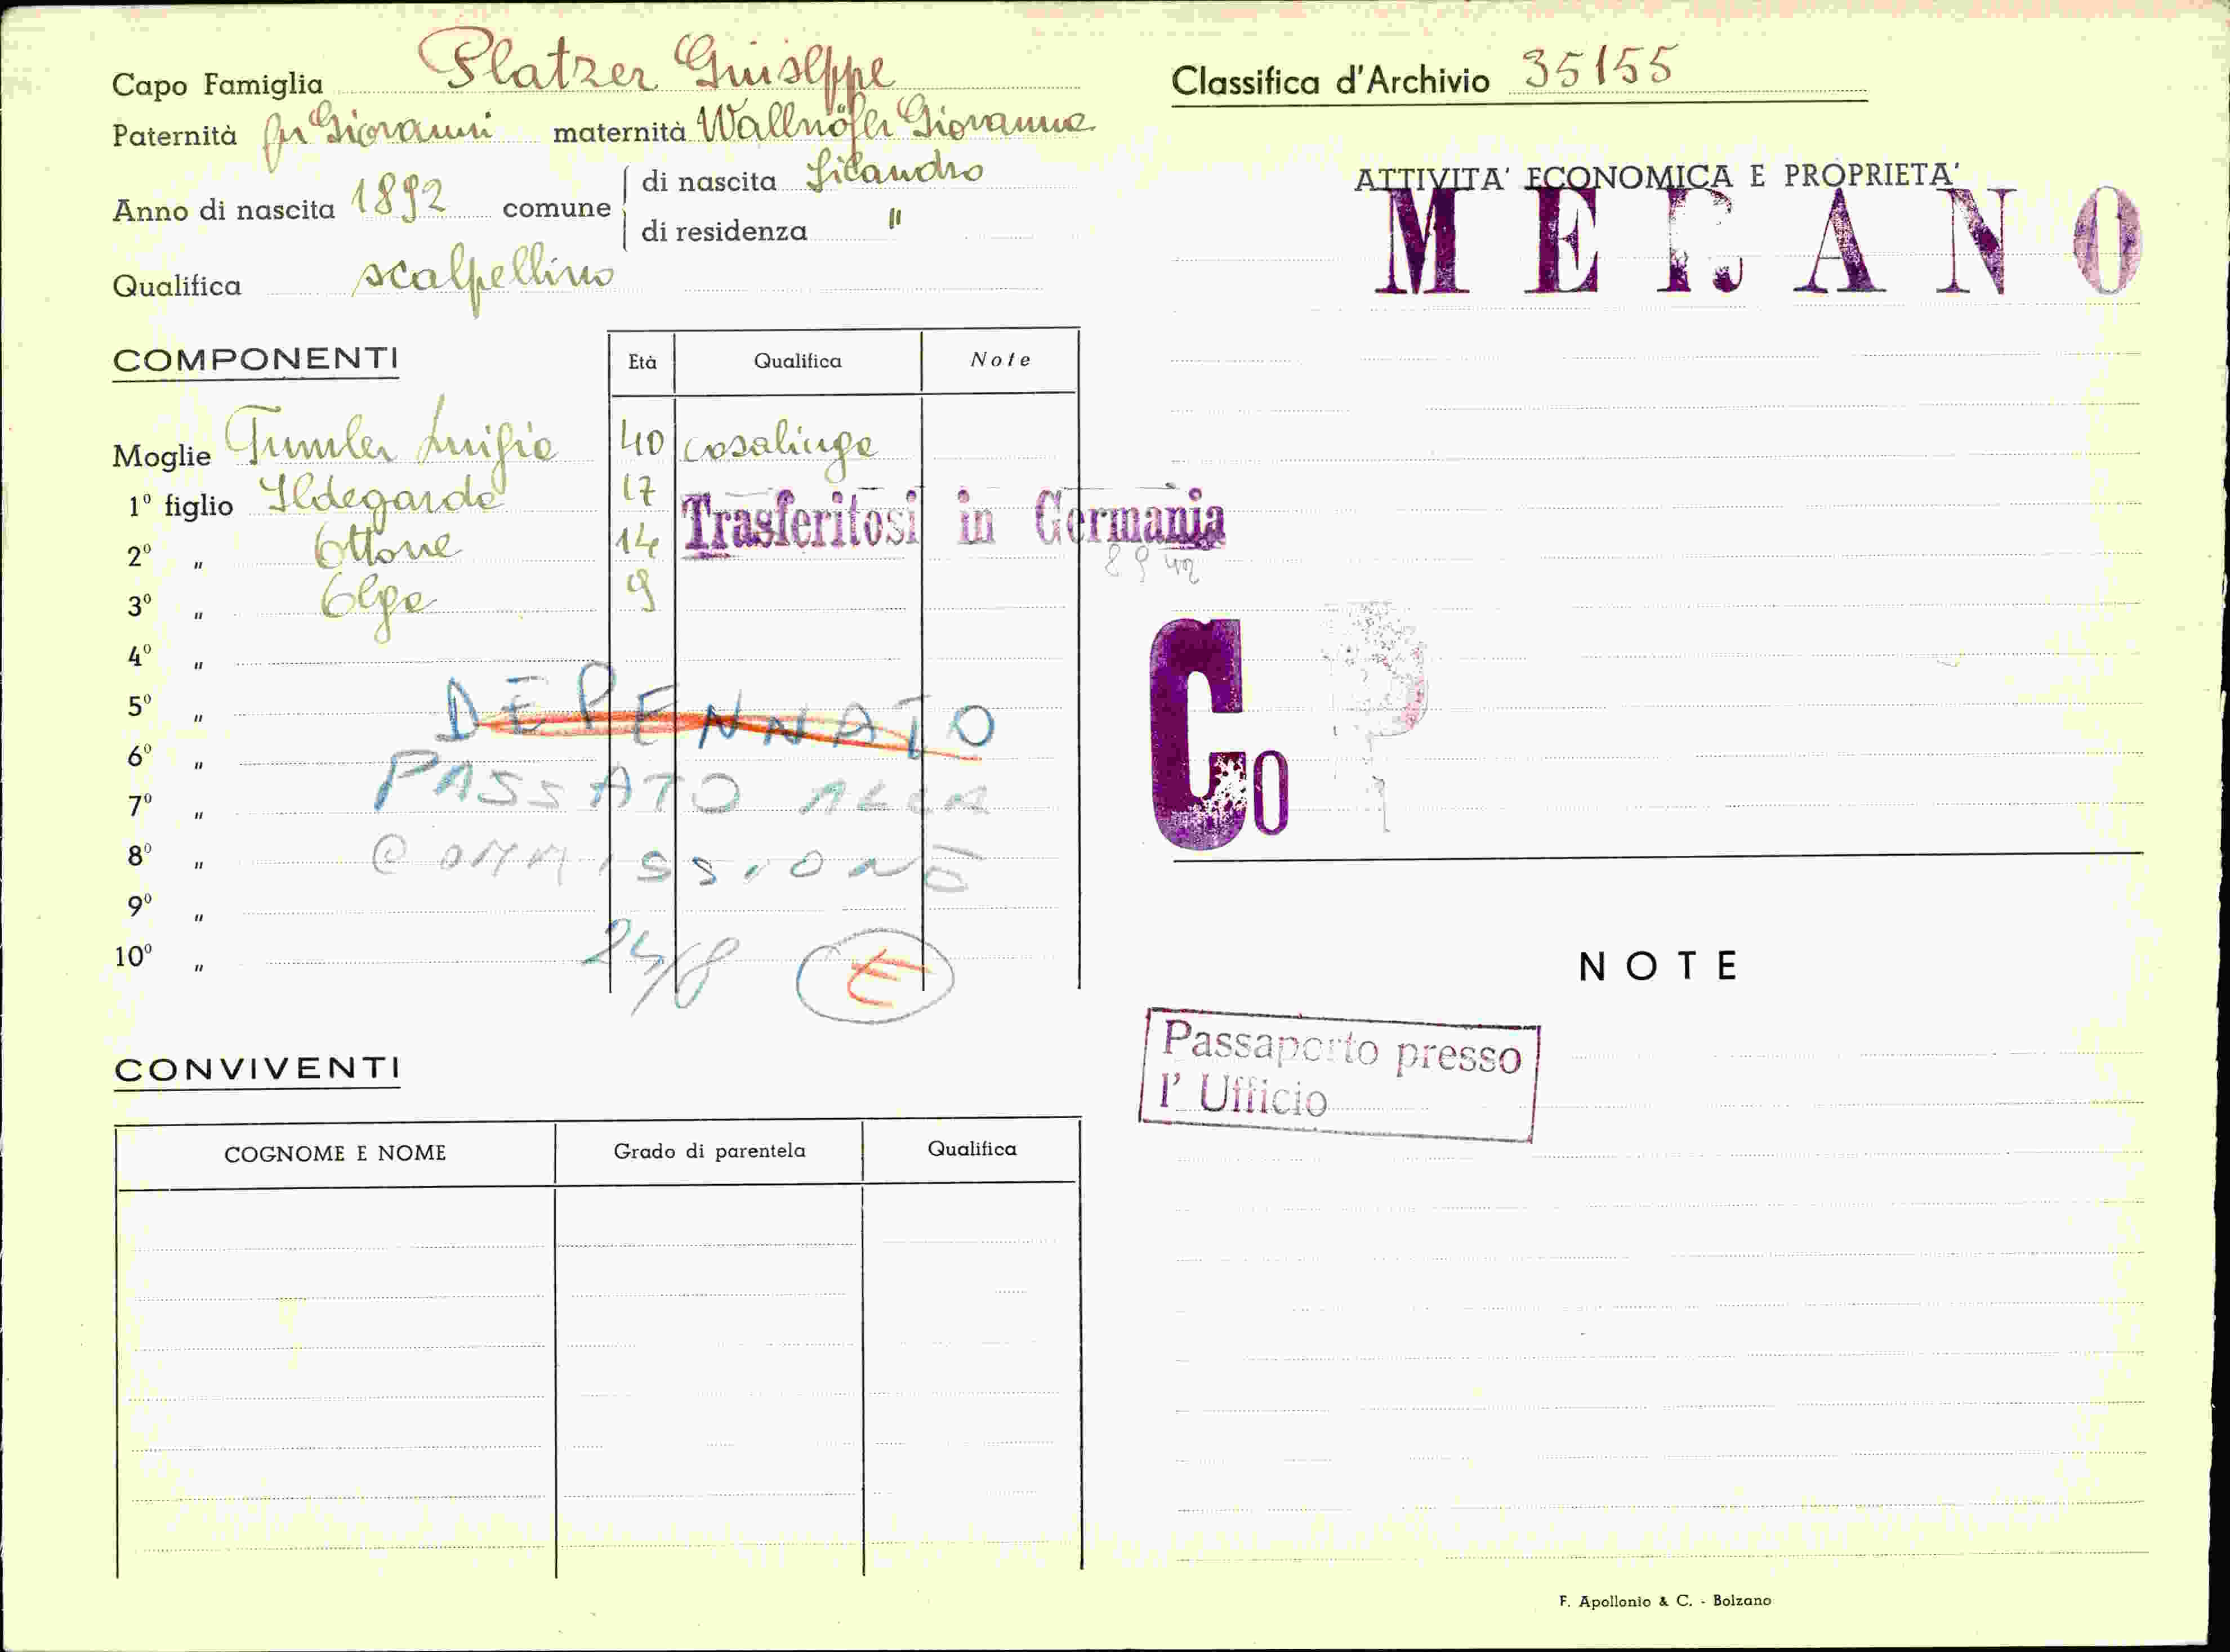 Capo Famiglia Platzer Giuseppe
Paternità fu Giovanni maternità Wallnöfer Giovanna
Anno di nascita 1892 comune di nascita Silandro
di residenza "
Qualifica scalpellino
COMPONENTI Età Qualifica Note
Moglie Tumler Luigia 40 casalinga
1º figlio Ildegarda 17
2º " Ottone 14
3º " Olga 9
4º "
5º "
6º "
7º "
8º "
9º "
10º "
Trasferitosi in Germania
DEPENNATO
PASSATO ALLA
COMMISSIONE
24/8 E
CONVIVENTI
COGNOME E NOME Grado di parentela Qualifica
Classifica d'Archivio 35155
ATTIVITA' ECONOMICA E PROPRIETA'
MERANO
Co
NOTE
Passaporto presso
l' Ufficio
F. Apollonio & C. - Bolzano